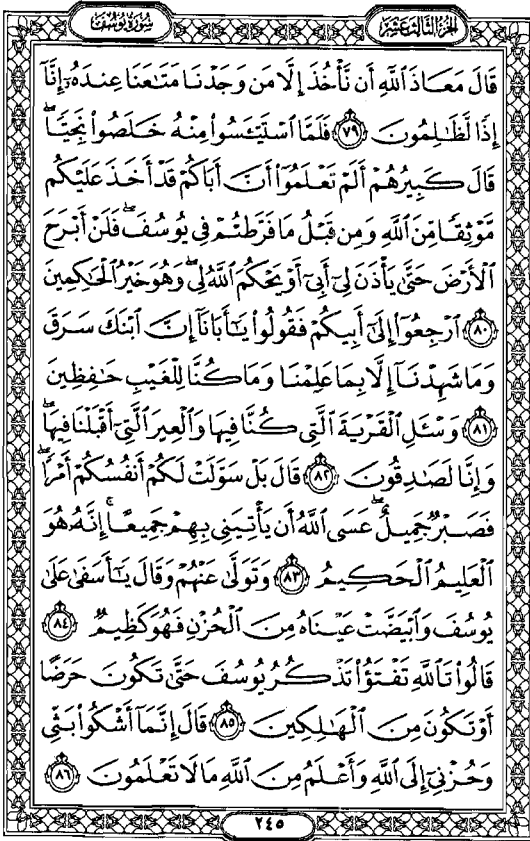 سُورَةُ يُوسُفَ
الجُزْءُ الثَّالِثَ عَشَرَ
قَالَ مَعَاذَ ٱللَّهِ أَن نَّأْخُذَ إِلَّا مَن وَجَدْنَا مَتَـٰعَنَا عِندَهُۥٓ إِنَّآ
إِذًا لَّظَـٰلِمُونَ ٧٩ فَلَمَّا ٱسْتَيْـَٔسُوا۟ مِنْهُ خَلَصُوا۟ نَجِيًّا ۖ
قَالَ كَبِيرُهُمْ أَلَمْ تَعْلَمُوٓا۟ أَنَّ أَبَاكُمْ قَدْ أَخَذَ عَلَيْكُم
مَّوْثِقًا مِّنَ ٱللَّهِ وَمِن قَبْلُ مَا فَرَّطتُمْ فِى يُوسُفَ ۖ فَلَنْ أَبْرَحَ
ٱلْأَرْضَ حَتَّىٰ يَأْذَنَ لِىٓ أَبِىٓ أَوْ يَحْكُمَ ٱللَّهُ لِى ۖ وَهُوَ خَيْرُ ٱلْحَـٰكِمِينَ
٨٠ ٱرْجِعُوٓا۟ إِلَىٰٓ أَبِيكُمْ فَقُولُوا۟ يَـٰٓأَبَانَآ إِنَّ ٱبْنَكَ سَرَقَ
وَمَا شَهِدْنَآ إِلَّا بِمَا عَلِمْنَا وَمَا كُنَّا لِلْغَيْبِ حَـٰفِظِينَ
٨١ وَسْـَٔلِ ٱلْقَرْيَةَ ٱلَّتِى كُنَّا فِيهَا وَٱلْعِيرَ ٱلَّتِىٓ أَقْبَلْنَا فِيهَا ۖ
وَإِنَّا لَصَـٰدِقُونَ ٨٢ قَالَ بَلْ سَوَّلَتْ لَكُمْ أَنفُسُكُمْ أَمْرًا ۖ
فَصَبْرٌ جَمِيلٌ ۖ عَسَى ٱللَّهُ أَن يَأْتِيَنِى بِهِمْ جَمِيعًا ۚ إِنَّهُۥ هُوَ
ٱلْعَلِيمُ ٱلْحَكِيمُ ٨٣ وَتَوَلَّىٰ عَنْهُمْ وَقَالَ يَـٰٓأَسَفَىٰ عَلَىٰ
يُوسُفَ وَٱبْيَضَّتْ عَيْنَاهُ مِنَ ٱلْحُزْنِ فَهُوَ كَظِيمٌ ٨٤
قَالُوا۟ تَٱللَّهِ تَفْتَؤُا۟ تَذْكُرُ يُوسُفَ حَتَّىٰ تَكُونَ حَرَضًا
أَوْ تَكُونَ مِنَ ٱلْهَـٰلِكِينَ ٨٥ قَالَ إِنَّمَآ أَشْكُوا۟ بَثِّى
وَحُزْنِىٓ إِلَى ٱللَّهِ وَأَعْلَمُ مِنَ ٱللَّهِ مَا لَا تَعْلَمُونَ ٨٦
٢٤٥